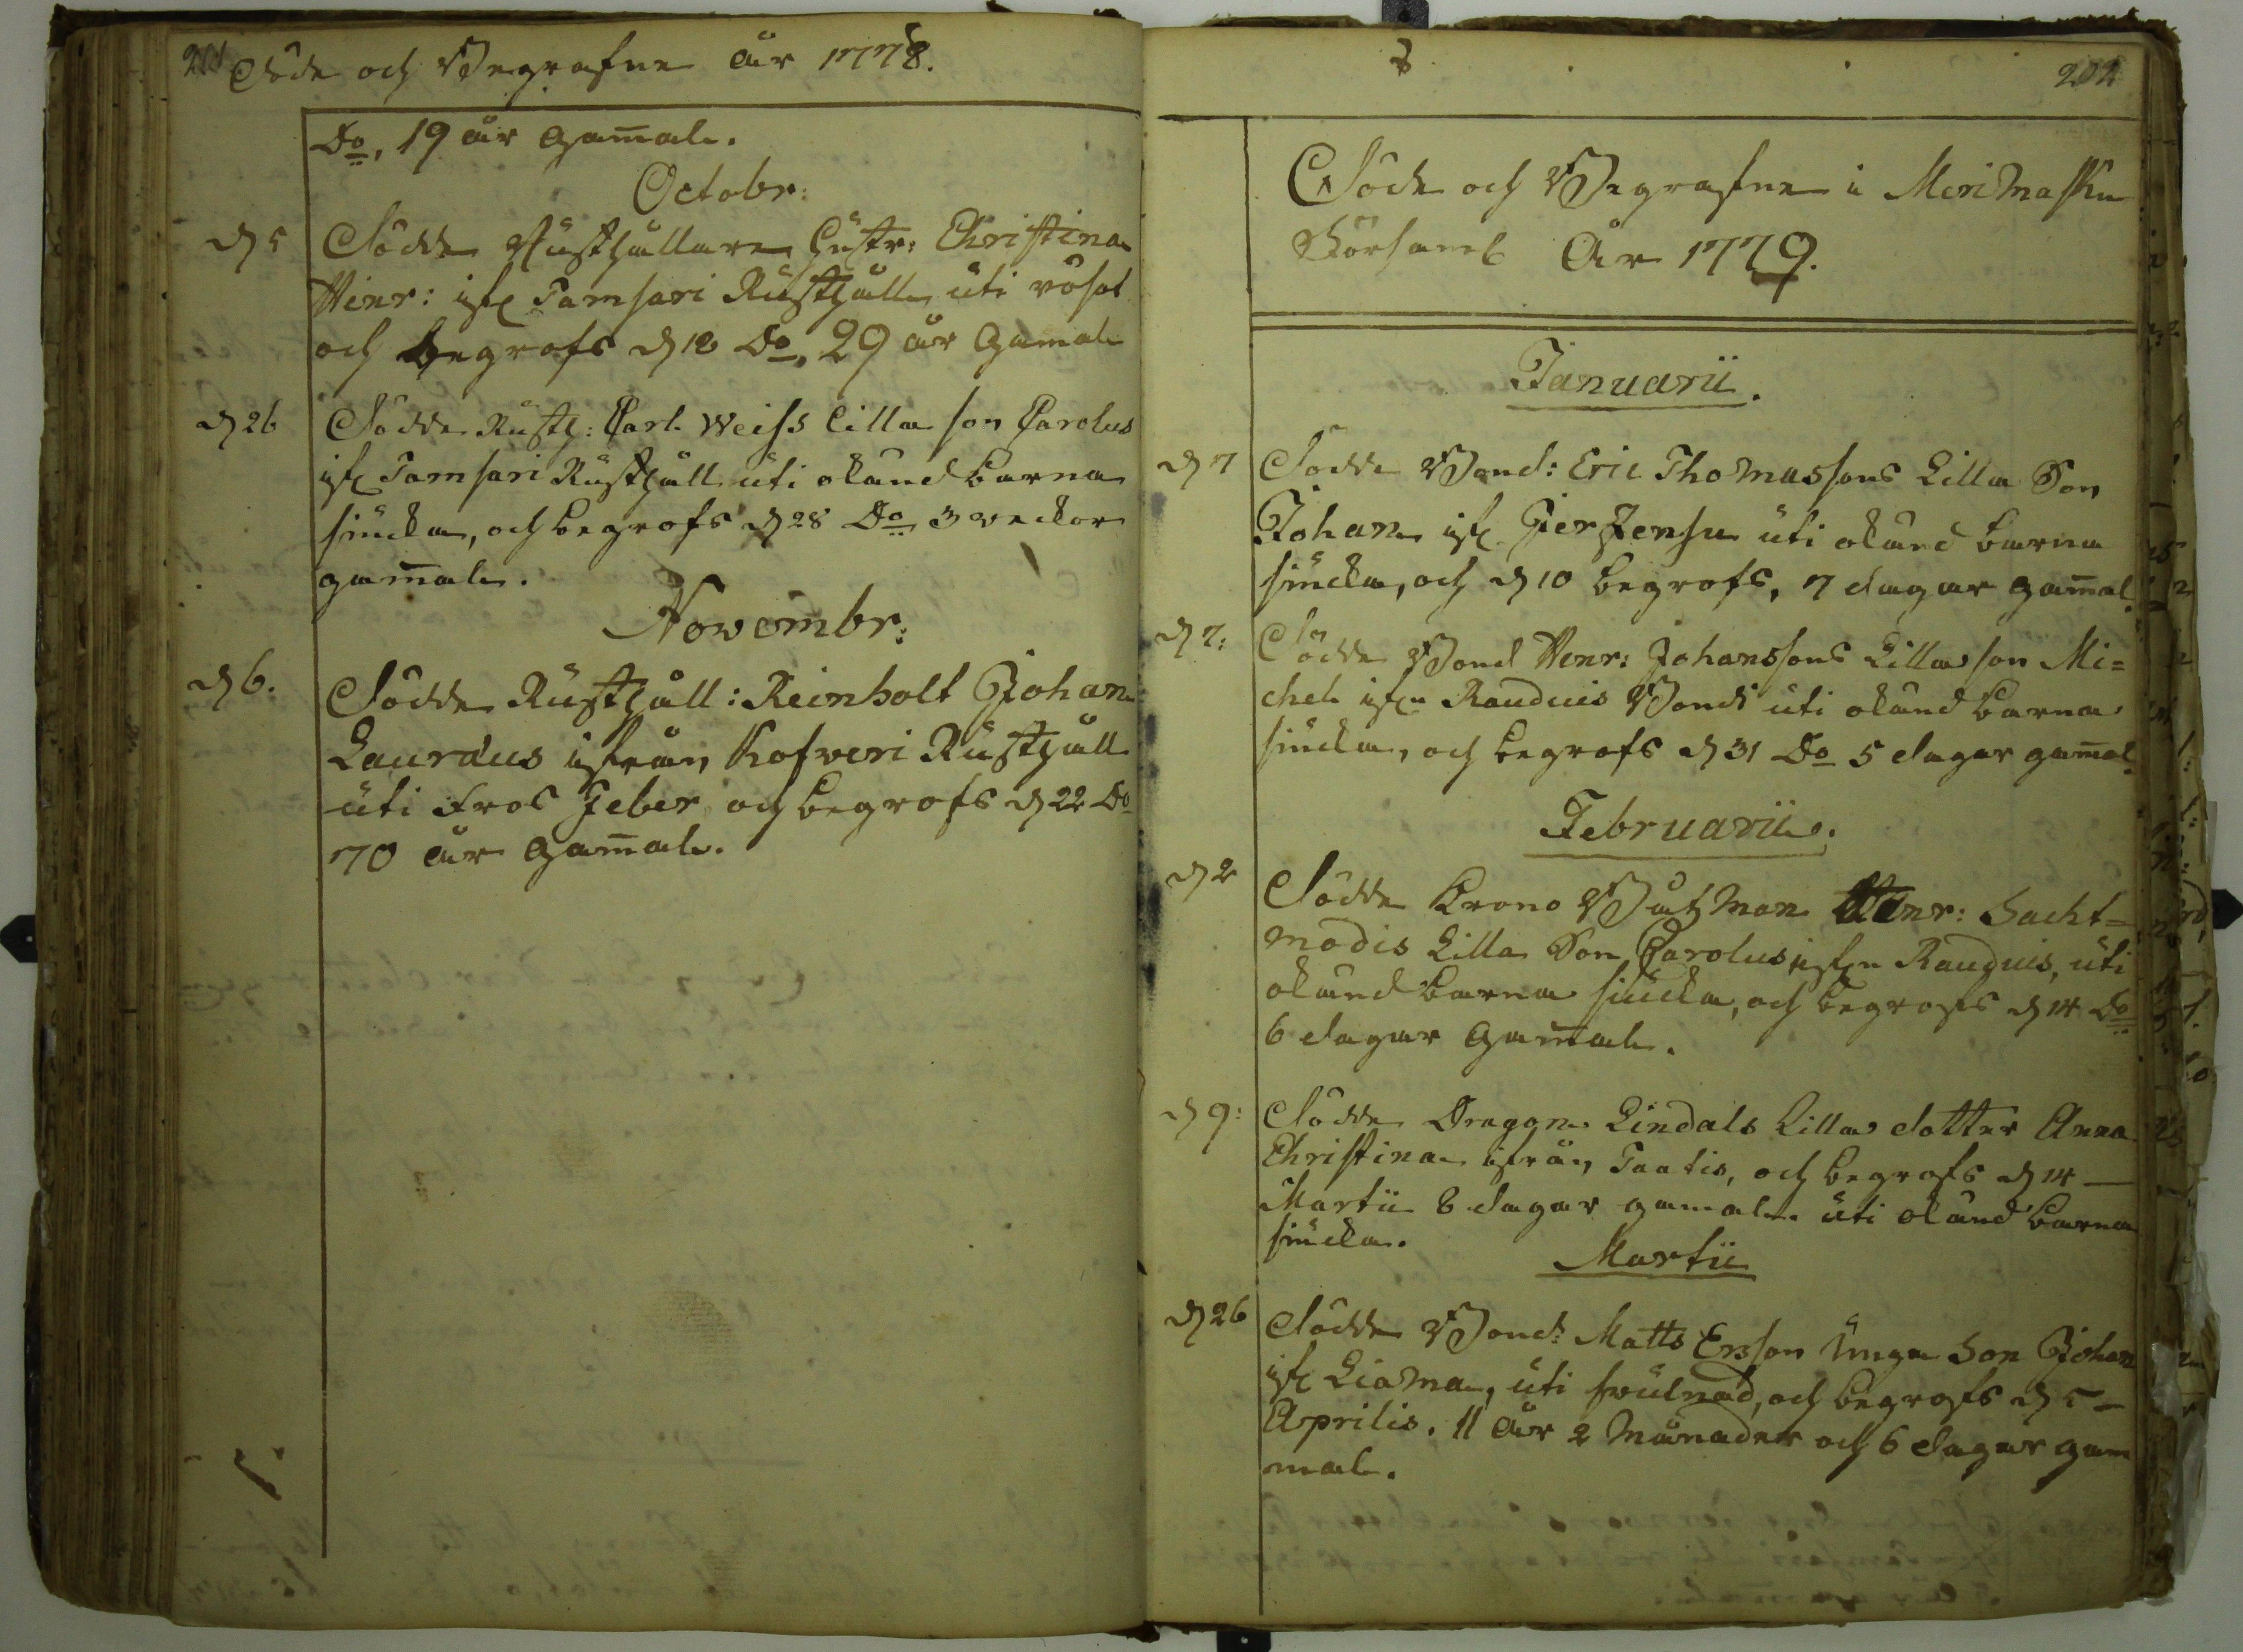 201 Döde och Begrafne år 1778.
Do, 19 år gamal.
Octobr:
d 5 Dödde Rusthållare hustr: Christina
Henr: ifr Tamsari Rusthåll uti rösot
och begrofs d 12 Do, 29 år gamal
d 26 Dödde Rusth: Carl Weiss lilla son Carolus
ifr Tamsari Rusthåll uti okänd barna
siucka, och begrofs d 28 Do 3 veckor
gamal.
Novembr:
d 6. Dödde Rusthåll: Reinholt Johan
Lauræus ifrån Kofveri Rusthåll
uti Fros Feber och begrofs d 22 Do
70 år gamal.
202
Döde och Begrafne i Merimasku
År 1779.
Januarii.
d 7 Dödde Bond: Eric Thomassons Lilla Son
Johan ifr uti okänd barna
siucka, och d 10 begrofs, 7 dagar gamal.
d 7: Dödde Bond Henr: Johanssons Lilla son Mi=
chel ifrn Rauduis Bond uti okänd barna
siucka, och begrofs d 31 Do 5 dagar gamal.
Februarii.
d 2 Dödde Krono Båtzman Henr: Sacht=
modis Lilla Son Carolus ifrn Rauduis, uti
okänd barna siucka, och begrofs d 14 Do
6 dagar gamal.
d 9: Dödde Dragon Lindals Lilla dotter Anna
Christina ifrån Taatis, och begrofs d 14
Martii 8 dagar gamal. uti okänd barna
siucka.
Martii
d 26 Dödde Bond: Matts Ersson Unga Son Johan
ifr Liama, uti svulnad, och begrofs d 5
Aprilis. 11 år 2 Månader och 6 dagar gam
mal.